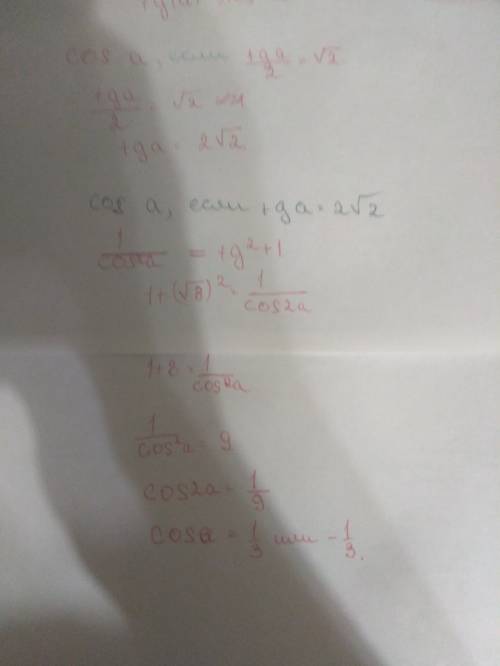 cos a, если tga/2 = √2
tga/2 = √2
tga = 2√2
cos a, если tga = 2√2
1/cos²a = tg²+1
1+(√8)² = 1/cos2a
1+8 = 1/cos²a
1/cos²a = 9
cos2a = 1/9
cosa = 1/3 или -1/3.